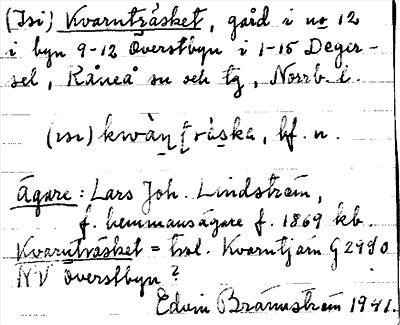 (Isi) Kvarnträsket, gård i no 12
i byn 9-12 Överstbyn i 1-15 Deger-
sel, Råneå sn och tg, Norrb. l.
(ısı) kwàṇṭräska, bf. n.
Ägare: Lars Joh. Lindström,
f. hemmansägare f. 1869 kb.
Kvarnträsket = trol. Kvarntjärn G 2990
NV Överstbyn?
Edvin Brännström 1941.